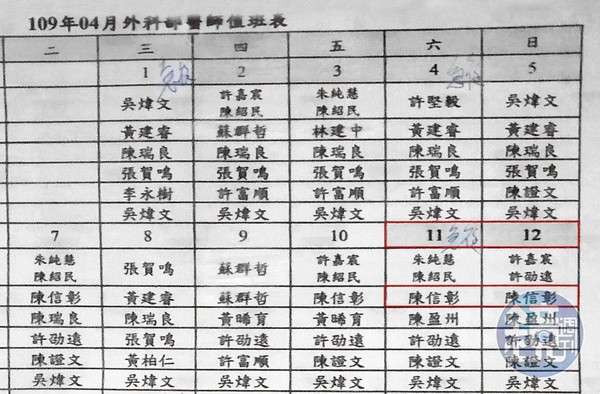 109年04月外科部醫師值班表
二 三 四 五 六 日
1 2 3 4 5
吳煒文 許嘉宸 陳紹民 朱純慧 陳紹民 許堅毅 吳煒文
黃建睿 蘇群哲 林建中 黃建睿 黃建睿
陳瑞良 陳瑞良 陳瑞良 陳瑞良 陳瑞良
張賀鳴 張賀鳴 張賀鳴 張賀鳴 張賀鳴
李永樹 許富順 許富順 許富順 陳證文
吳煒文 吳煒文 吳煒文 吳煒文 吳煒文
7 8 9 10 11 12
朱純慧 陳紹民 張賀鳴 蘇群哲 許嘉宸 陳紹民 朱純慧 陳紹民 許嘉宸 許劭遠
陳信彰 黃建睿 蘇群哲 陳信彰 陳信彰 陳信彰
陳瑞良 陳瑞良 黃晞育 黃晞育 陳盈州 陳盈州
許劭遠 張賀鳴 許劭遠 許劭遠 許劭遠 許劭遠
陳證文 黃柏仁 許富順 陳證文 陳證文 陳證文
吳煒文 吳煒文 吳煒文 吳煒文 吳煒文 吳煒文